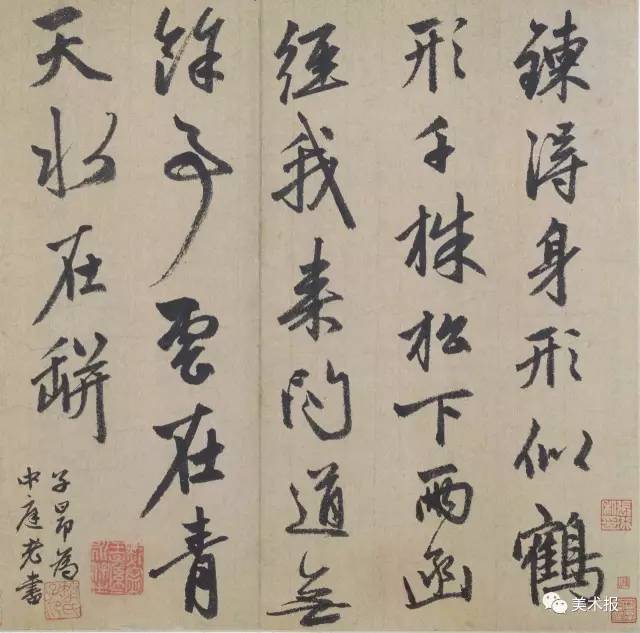 鍊得身形似鶴
形千株松下兩函
經我来问道無
餘事雲在青
天水在缾
子昂為
中庭老書
美术报